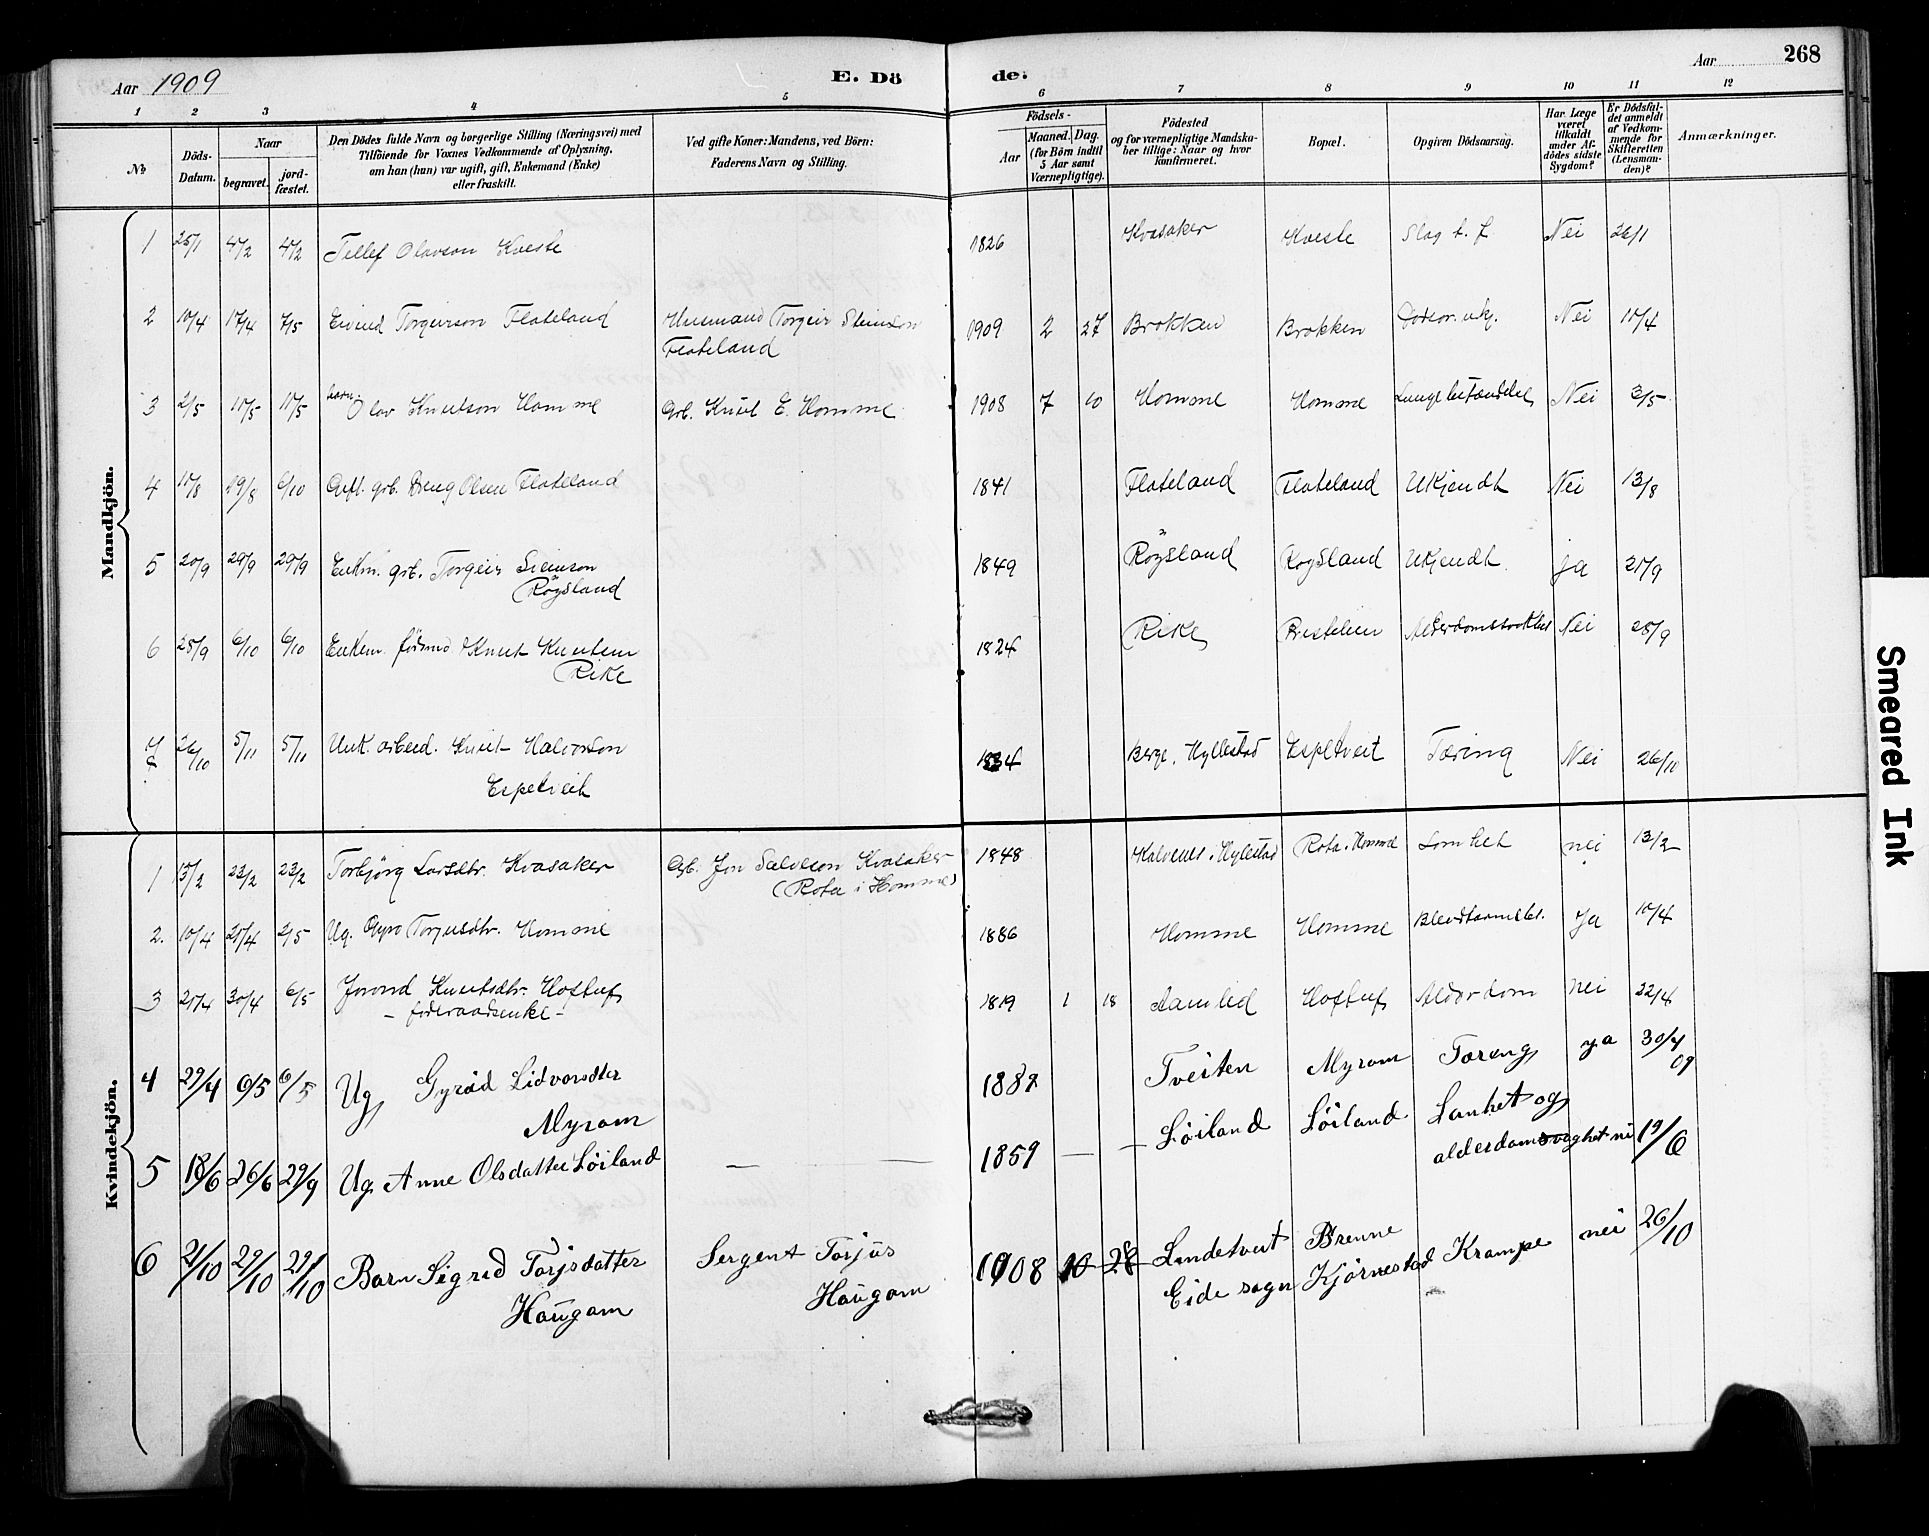 Aar 1909
E. Döde.
Aar
268
1 2 3 4 5 6 7 8 9 10 11 12
№
Döds-Datum.
Naar
begravet.
jord-fæstet.
Den Dödes fulde Navn og borgerlige Stilling (Næringsvei) med
Tilföiende for Voxnes Vedkommende af Oplysning,
om han (hun) var ugift, gift, Enkemand (Enke)
eller fraskilt.
Ved gifte Koner: Mandens, ved Börn:
Faderens Navn og Stilling.
Födsels-
Aar
Maaned. Dag.
(for Börn indtil
5 Aar samt
Værnepligtige).
Födested
og for værnepligtige Mandska-
ber tillige: Naar og hvor
konfirmeret.
Bopæl.
Opgiven Dödsaarsag.
Har Læge
været
tilkaldt
under Af-
dödes sidste
Sygdom?
Er Dödsfal-
det anmeldt
af Vedkom-
mende for
Skifteretten
(Lensman-
den)?
Anmærkninger.
Mandkjön.
1 25/1 4/2 4/2 Tellef Olavson Kveste 1826 Kvasaker Kveste Slag t. f. Nei 26/1
2 10/4 17/4 7/5 Eivind Torgeirson Flateland Husmand Torgeir Steinson 1909 2 27 Brokken Brokken Nei 11/4
Flateland
3 2/5 11/5 11/5 barn Olav Knutson Homme Grb. Knut E. Homme 1908 7 10 Homme Homme Lungebetændelse Nei 3/5
4 11/8 19/8 6/10 Gift. grb. Dreng Olsen Flateland 1841 Flateland Flateland Ukjendt Nei 13/8
5 20/9 29/9 29/9 Enkm. grb. Torgeir Steinson 1849 Røysland Roysland Ukjendt. ja 21/9
Røysland
6 25/9 6/10 6/10 Enkem. Knut Knutsen 1824 Rike Alderdomssvækkel Nei 28/9
Rike
7 26/10 5/11 5/11 Unk. arbeid. Knut Halvorson 1834 Berge, Hyllestad Espetveit Tæring Nei 26/10
Espetveit
Kvindekjön.
1 13/2 23/2 23/2 Torbjörg Larsdtr. Kvasaker Grb. Jon Salveson Kvasaker 1848 i Hyllestad Rota i Homme nei 13/2
(Rota i Homme)
2. 10/4 21/4 2/5 Ug. Gyro Torjusdtr. Homme 1886 Homme Homme Blindtarmsbet. Ja 10/4
3 21/4 30/4 6/5 Jorond Knutsdtr. Hoftuft 1819 1 18 Aamlid Hoftuft Alderdom nei 22/4
- föderaadsenke -
4 29/4 6/5 6/5 Ug, Gyrid Lidvorsdter 1889 Tveiten Myrom Tæreng ya 30/4 09
Myrom
5 18/6 26/6 29/9 Ug. Anne Olsdatter Löiland — — 1859 — — Löiland Löiland Lanhet og
alderdomsvaghet nei 19/6
6 21/10 29/10 29/10 Barn Sigrid Torjsdatter Sergent Torjus 1908 10 28 Lindetveit Brenne Krampe nei 26/10
Haugam Haugam Eide sogn Kjörnestad
Smeared Ink